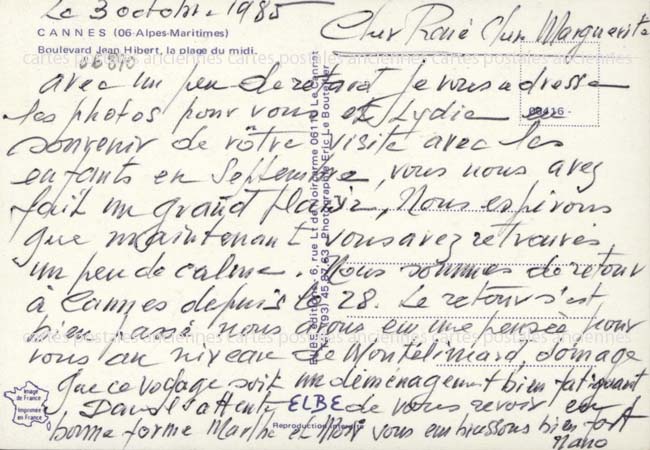 Le 3 octobre 1985
Cher René Cher Marguerite
CANNES (06-Alpes-Maritimes)
Boulevard Jean Hibert, la plage du midi.
06810
avec un peu de retard je vous adresse
les photos pour vous et Lydie
souvenir de vôtre visite avec les
enfants en Septembre, vous nous avez
fait un grand plaisir, Nous espérons
que maintenant vous avez retrouvés
un peu de calme. Nous sommes de retour
à Cannes depuis le 28. Le retour s'est
bien passé nous avons eu une pensée pour
vous au niveau de Montélimard, domage
que ce voyage soit un déménagement bien fatiguant
Dans l'attente de vous revoir en
bonne forme Marthe et Moi vous embrassons bien fort
Nano
08416 -
EDITIONS ELBE, 6, rue Lt de Noircarme 06110 Le Cannet
(93) 45 87 63 - Photographie Eric Le Bouteiller
ELBE
Reproduction interdite
Image de France
Imprimée en France
cartes postales anciennes cartes postales anciennes cartes postales anciennes
cartes postales anciennes cartes postales anciennes cartes postales anciennes